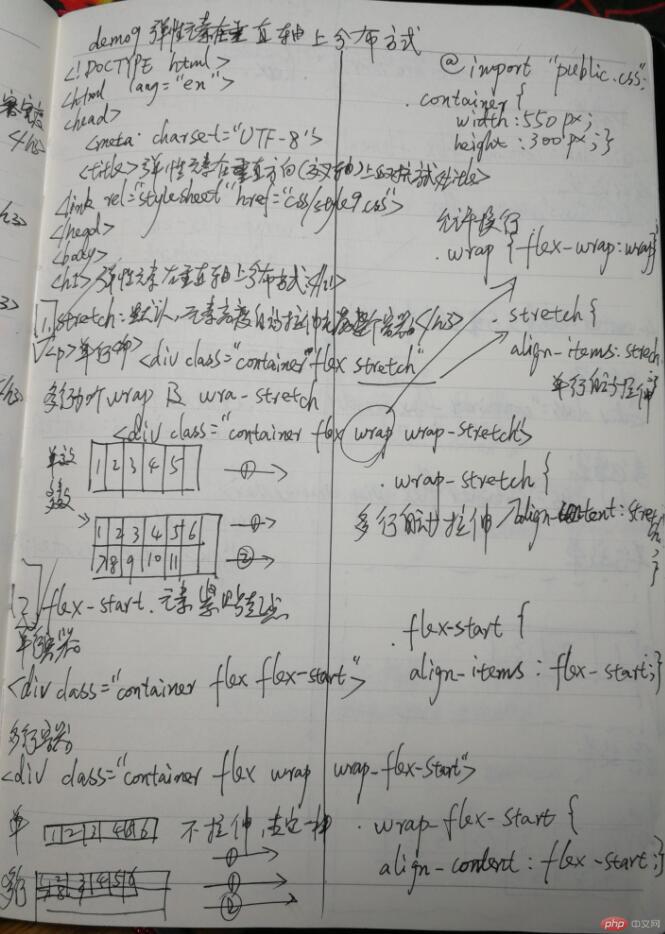 demo9 弹性元素在垂直轴上分布方式
<!DOCTYPE html>
<html lang="en">
<head>
<meta charset="UTF-8">
<title>弹性元素在垂直方向(交叉轴)上的对齐方式</title>
<link rel="stylesheet" href="css/style9.css">
</head>
<body>
<h1>弹性元素在垂直轴上分布方式</h1>
[1] stretch:默认,元素高度自动拉伸充满整个容器</h3>
<p>单行
<div class="container flex stretch"
多行 wrap 及 wra-stretch
<div class="container flex wrap wrap-stretch">
单行
1 2 3 4 5 ①
多行
1 2 3 4 5 6 ①
7 8 9 10 11 ②
[2] flex-start 元素紧贴起点
单行容器
<div class="container flex flex-start">
多行容器
<div class="container flex wrap wrap-flex-start">
单 1 2 3 4 5 6 不拉伸
①
多行 1 2 3 4 5 6 ①
7 8 ②
@import "public.css";
.container {
width:550px;
height:300px;}
允许换行
.wrap {flex-wrap:wrap}
.stretch {
align-items:strech
单行自动拉伸 }
.wrap-stretch {
多行自动拉伸 align-content:stre
;}
.flex-start {
align-items:flex-start;}
.wrap-flex-start {
align-content:flex-start;}
php 中文网